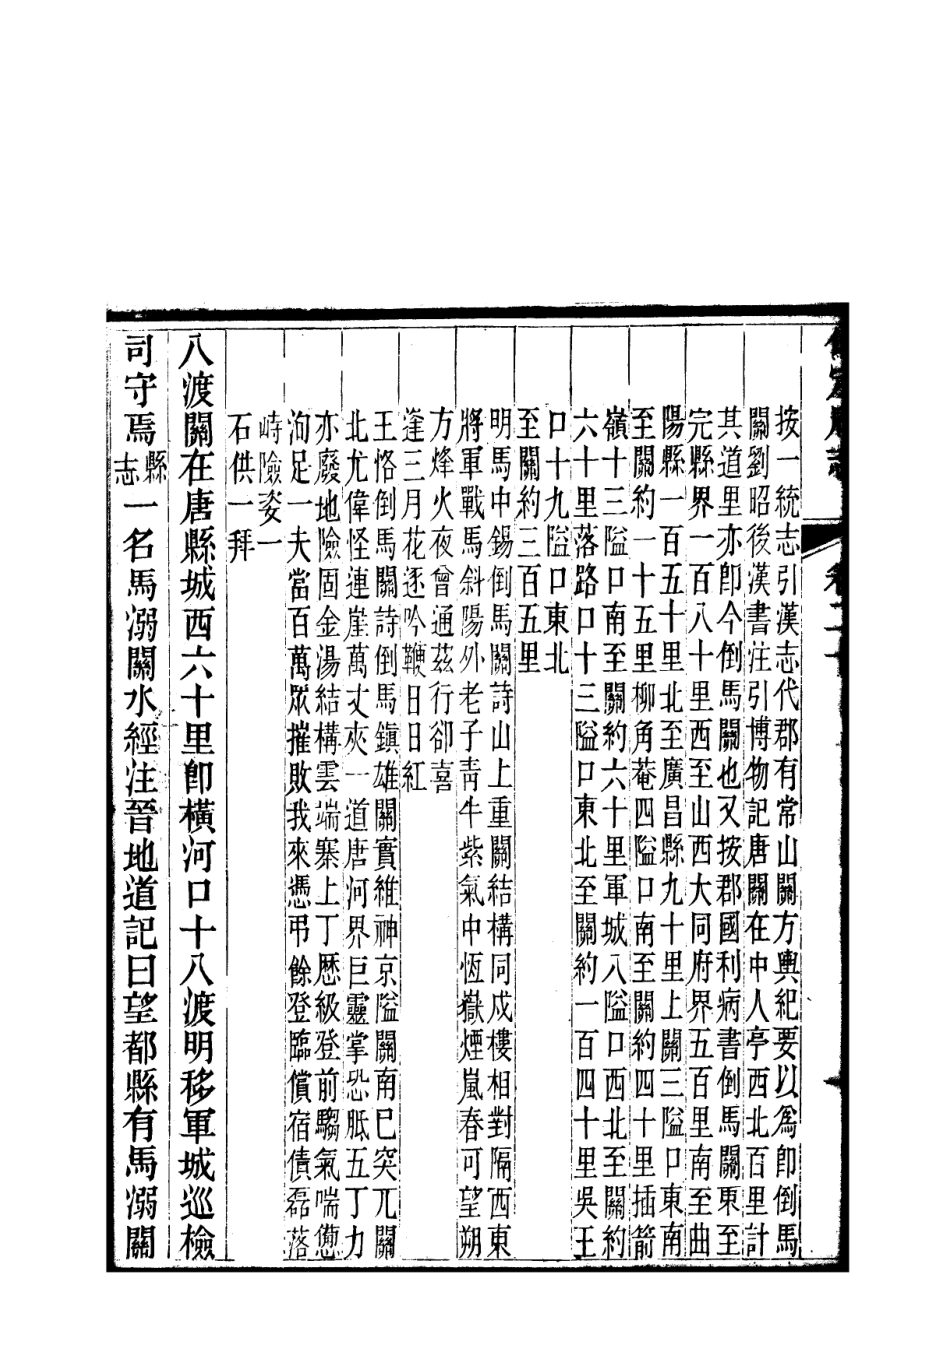 按一統志引漢志代郡有常山關方輿紀要以爲卽倒馬
關劉昭後漢書注引博物記唐關在中人亭西北百里計
其道里亦卽今倒馬關也又按郡國利病書倒馬關東至
完縣界一百八十里西至山西大同府界五百里南至曲
陽縣一百五十里北至廣昌縣九十里上關三隘口東南
至關約一十五里柳角菴四隘口南至關約四十里插箭
嶺十三隘口南至關約六十里軍城八隘口西北至關約
六十里落路口十三隘口東北至關約一百四十里吳王
口十九隘口東北
至關約三百五里
明馬中錫倒馬關詩山上重關結構同戍樓相對隔西東
將軍戰馬斜陽外老子靑牛紫氣中恆嶽煙嵐春可望朔
方烽火夜曾通茲行卻喜
逢三月花逐吟鞭日日紅
王恪倒馬關詩倒馬鎭雄關實維神京隘關南巳突兀關
北尤偉怪連崖萬丈夾一道唐河界巨靈掌恐胝五丁力
亦廢地險固金湯結構雲端寨上丁歷級登前騶氣喘憊
洵足一夫當百萬眾摧敗我來憑弔餘登臨償宿債磊落
峙險姿一
石供一拜
八渡關在唐縣城西六十里卽橫河口十八渡明移軍城巡檢
司守焉縣志一名馬溺關水經注晉地道記曰望都縣有馬溺關